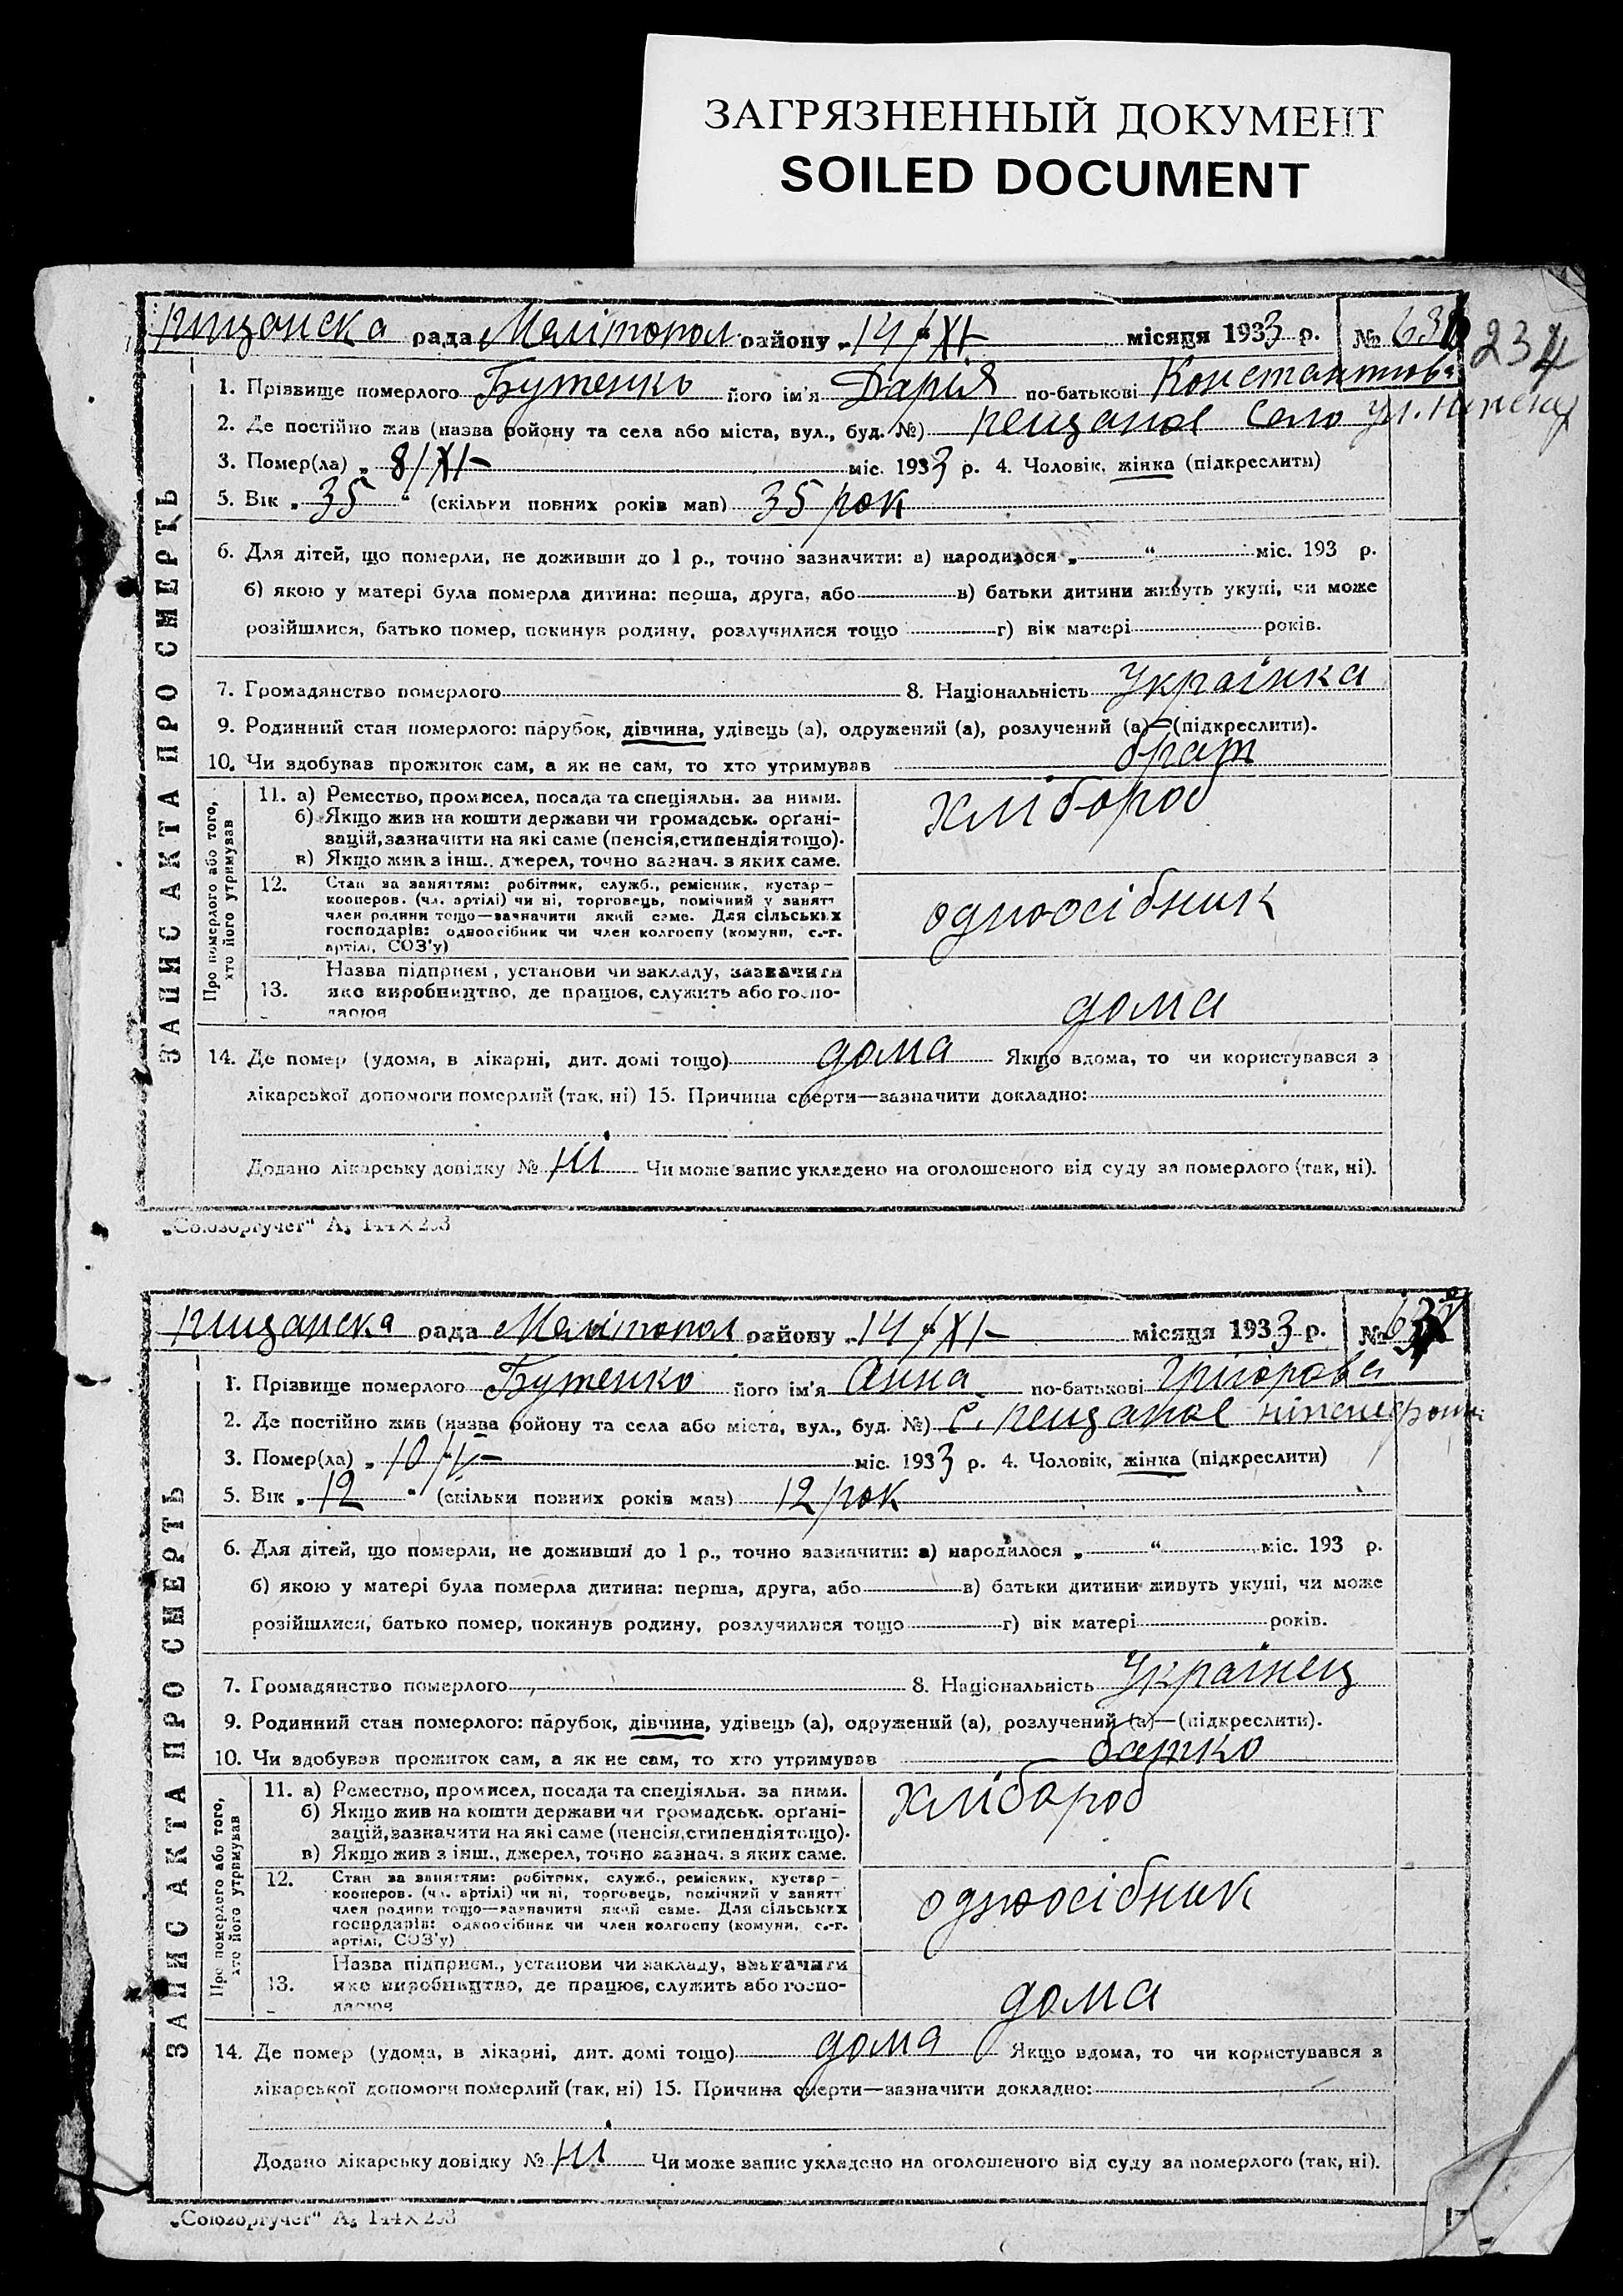 ЗАГРЯЗНЕННЫЙ ДОКУМЕНТ
SOILED DOCUMENT
пищанска рада Мелітопол району „14/XI- місяця 1933 р. № 63
234
1. Прізвище померлого Бутенко його ім'я Дарія по-батькові Константнова
2. Де постійно жив (назва району та села або міста, вул., буд. №) пещаное село ул.
3. Помер(ла) „ 8/XI- міс. 1933 р. 4. Чоловік, жінка (підкреслити)
5. Вік „ 35 “ (скільки повних років мав) 35 рок
6. Для дітей, що померли, не доживши до 1 р., точно зазначити: а) народилося „ “ міс. 193 р.
б) якою у матері була померла дитина: перша, друга, або в) батьки дитини живуть укупі, чи може
розійшлися, батько помер, покинув родину, розлучилися тощо г) вік матері років.
7. Громадянство померлого 8. Національність Українка
9. Родинний стан померлого: парубок, дівчина, удівець (а), одружений (а), розлучений (а)—(підкреслити).
10. Чи здобував прожиток сам, а як не сам, то хто утримував брат
ЗАПИС АКТА ПРО СМЕРТЬ
Про померлого або того, хто його утримував
11. а) Ремество, промисел, посада та спеціяльн. за ними.
б) Якщо жив на кошти держави чи громадськ. орґані-
зацій, зазначити на які саме (пенсія, стипендія тощо).
в) Якщо жив з інш., джерел, точно зазнач. з яких саме.
хлібороб
12. Стан за заняттям: робітник, служб., ремісник, кустар—
кооперов. (чл. артілі) чи ні, торговець, помічний у занятт
член родини тощо—зазначити який саме. Для сільських
господарів: одноосібник чи член колгоспу (комуни, с.-г.
артілі, СОЗ'у)
одноосібник
13. Назва підприєм., установи чи закладу, зазначити
яке виробництво, де працює, служить або госпо-
дарює
дома
14. Де помер (удома, в лікарні, дит. домі тощо) дома Якщо вдома, то чи користувався з
лікарської допомоги померлий (так, ні) 15. Причина смерти—зазначити докладно:
Додано лікарську довідку № ні Чи може запис укладено на оголошеного від суду за померлого (так, ні).
„Союзоргучет“ А₅ 144×203
пищанска рада Мелітопол району „14/XI- місяця 1933 р. № 63
1. Прізвище померлого Бутенко його ім'я Анна по-батькові Грігорова
2. Де постійно жив (назва району та села або міста, вул., буд. №) с. пещаное
3. Помер(ла) „ 10/ міс. 1933 р. 4. Чоловік, жінка (підкреслити)
5. Вік „ 12 “ (скільки повних років мав) 12 рок
6. Для дітей, що померли, не доживши до 1 р., точно зазначити: а) народилося „ “ міс. 193 р.
б) якою у матері була померла дитина: перша, друга, або в) батьки дитини живуть укупі, чи може
розійшлися, батько помер, покинув родину, розлучилися тощо г) вік матері років.
7. Громадянство померлого 8. Національність Українец
9. Родинний стан померлого: парубок, дівчина, удівець (а), одружений (а), розлучений (а)—(підкреслити).
10. Чи здобував прожиток сам, а як не сам, то хто утримував батко
ЗАПИС АКТА ПРО СМЕРТЬ
Про померлого або того, хто його утримував
11. а) Ремество, промисел, посада та спеціяльн. за ними.
б) Якщо жив на кошти держави чи громадськ. орґані-
зацій, зазначити на які саме (пенсія, стипендія тощо).
в) Якщо жив з інш., джерел, точно зазнач. з яких саме.
хлібороб
12. Стан за заняттям: робітник, служб., ремісник, кустар—
кооперов. (чл. артілі) чи ні, торговець, помічний у занятт
член родини тощо—зазначити який саме. Для сільських
господарів: одноосібник чи член колгоспу (комуни, с.-г.
артілі, СОЗ'у)
одноосібник
13. Назва підприєм., установи чи закладу, зазначити
яке виробництво, де працює, служить або госпо-
дарює
дома
14. Де помер (удома, в лікарні, дит. домі тощо) дома Якщо вдома, то чи користувався з
лікарської допомоги померлий (так, ні) 15. Причина смерти—зазначити докладно:
Додано лікарську довідку № ні Чи може запис укладено на оголошеного від суду за померлого (так, ні).
„Союзоргучет“ А₅ 144×203